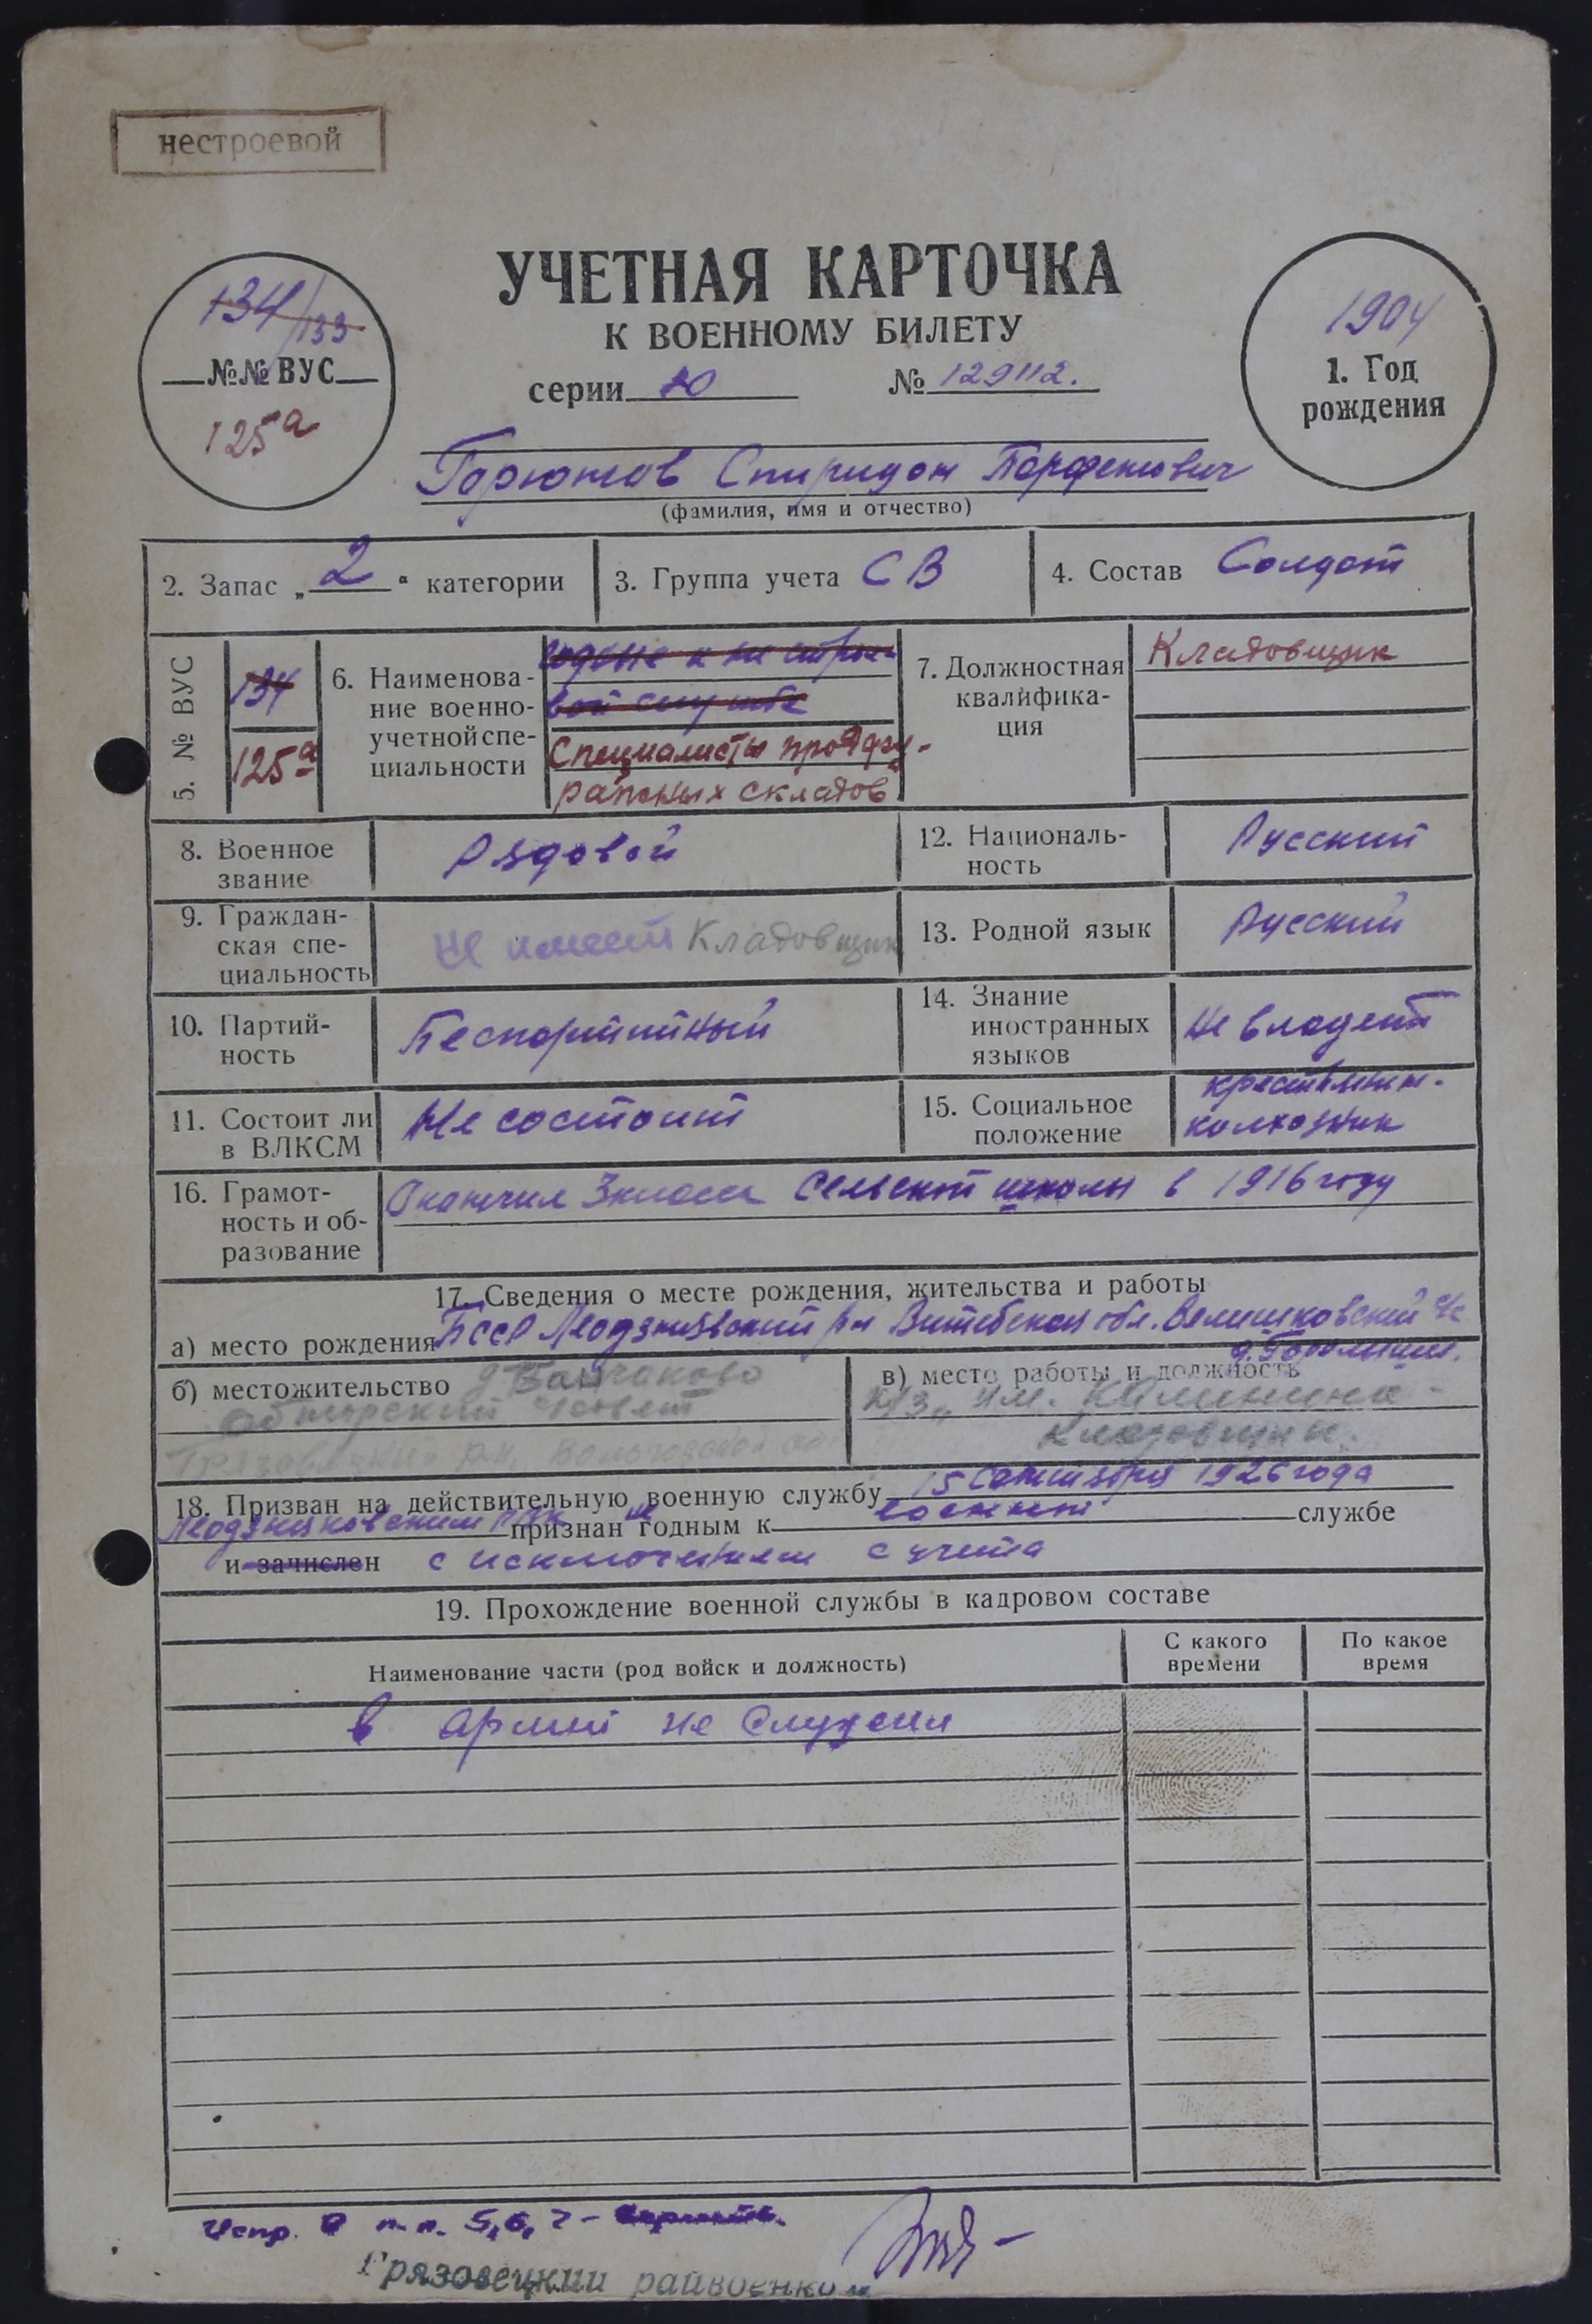 нестроевой
УЧЕТНАЯ КАРТОЧКА
К ВОЕННОМУ БИЛЕТУ
серии Ю № 129112.
134/133
№№ ВУС
125а
1904
1. Год
рождения
Горюнов Спиридон Парфенович
(фамилия, имя и отчество)
2. Запас „2“ категории
3. Группа учета СВ
4. Состав Солдат
5. № ВУС
134
125а
6. Наименова-
ние военно-
учетной спе-
циальности
годные к не строе-
вой службе
Специалисты продфу-
ражных складов
7. Должностная
квалифика-
ция
Кладовщик
8. Военное
звание
Рядовой
12. Националь-
ность
Русский
9. Граждан-
ская спе-
циальность
Не имеет Кладовщик
13. Родной язык
Русский
10. Партий-
ность
Беспартийный
14. Знание
иностранных
языков
Не владеет
11. Состоит ли
в ВЛКСМ
Не состоит
15. Социальное
положение
крестьянин-
колхозник
16. Грамот-
ность и об-
разование
Окончил 3 класса Сельской школы в 1916 году
17. Сведения о месте рождения, жительства и работы
а) место рождения БССР р-н Витебской обл. с/с
б) местожительство д.
с/совет
р-н, Вологодской об
в) место работы и должность
к/з „им. Калинина -
Кладовщик.
18. Призван на действительную военную службу 15 сентября 1926 года
РВК признан не годным к военной службе
и зачислен с исключением с учета
19. Прохождение военной службы в кадровом составе
Наименование части (род войск и должность)
С какого
времени
По какое
время
В армии не служил
Испр. в п.п. 5, 6, 7 -
Грязовецкий райвоенком